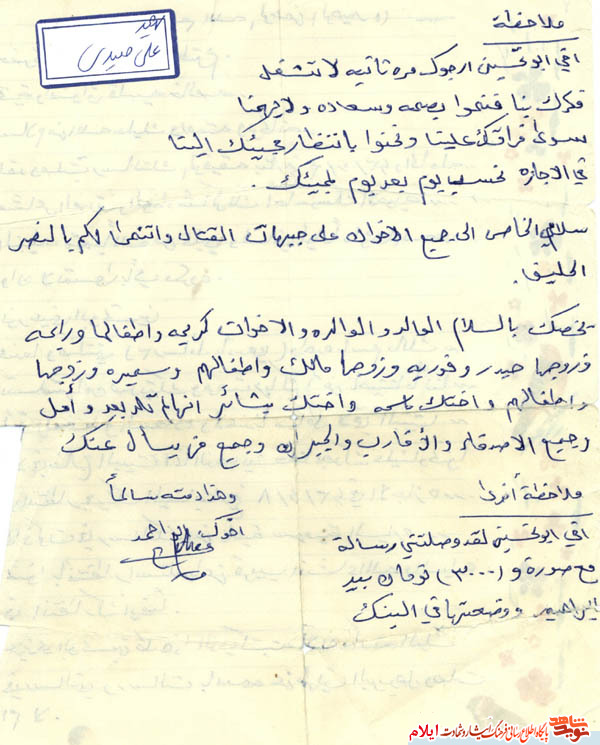 شهيد
علي صيدي
ملاحظة
اخي ابو تحسين ارجوك مره ثانيه لا تنشغل
فكرك بنا فنحنوا بصحه وسعاده ولا يهمنا
سوى فراقك علينا ونحنوا بانتظار مجيئك الينا
في الاجازه نحسب يوم بعد يوم لمجيئك .
سلامي الخاص الى جميع الاخوان على جبهات القتال واتمنى لكم بالنصر
الحليف .
يخصك بالسلام الوالد والوالده والاخوات كريمه واطفالها ورايحه
وزوجها حيدر وفوزيه وزوجها مالك واطفالهم وسميره وزوجها
واطفالهم واختك باسمه واختك بشائر انهام تلد بعد وأمل
وجميع الاصدقاء والاقارب والجيران وجميع من يسأل عنك
وهذا دمته سالماً
اخوك ابو احمد
ملاحظة أخرى
اخي ابو تحسين لقد وصلتني رسالة
مع صورة و (٣٠٠٠) تومان بيد
ابراهيم ووضعتها في البنك
نوید شاهد
پایگاه اطلاع رسانی فرهنگ ایثار و شهادت ایلام